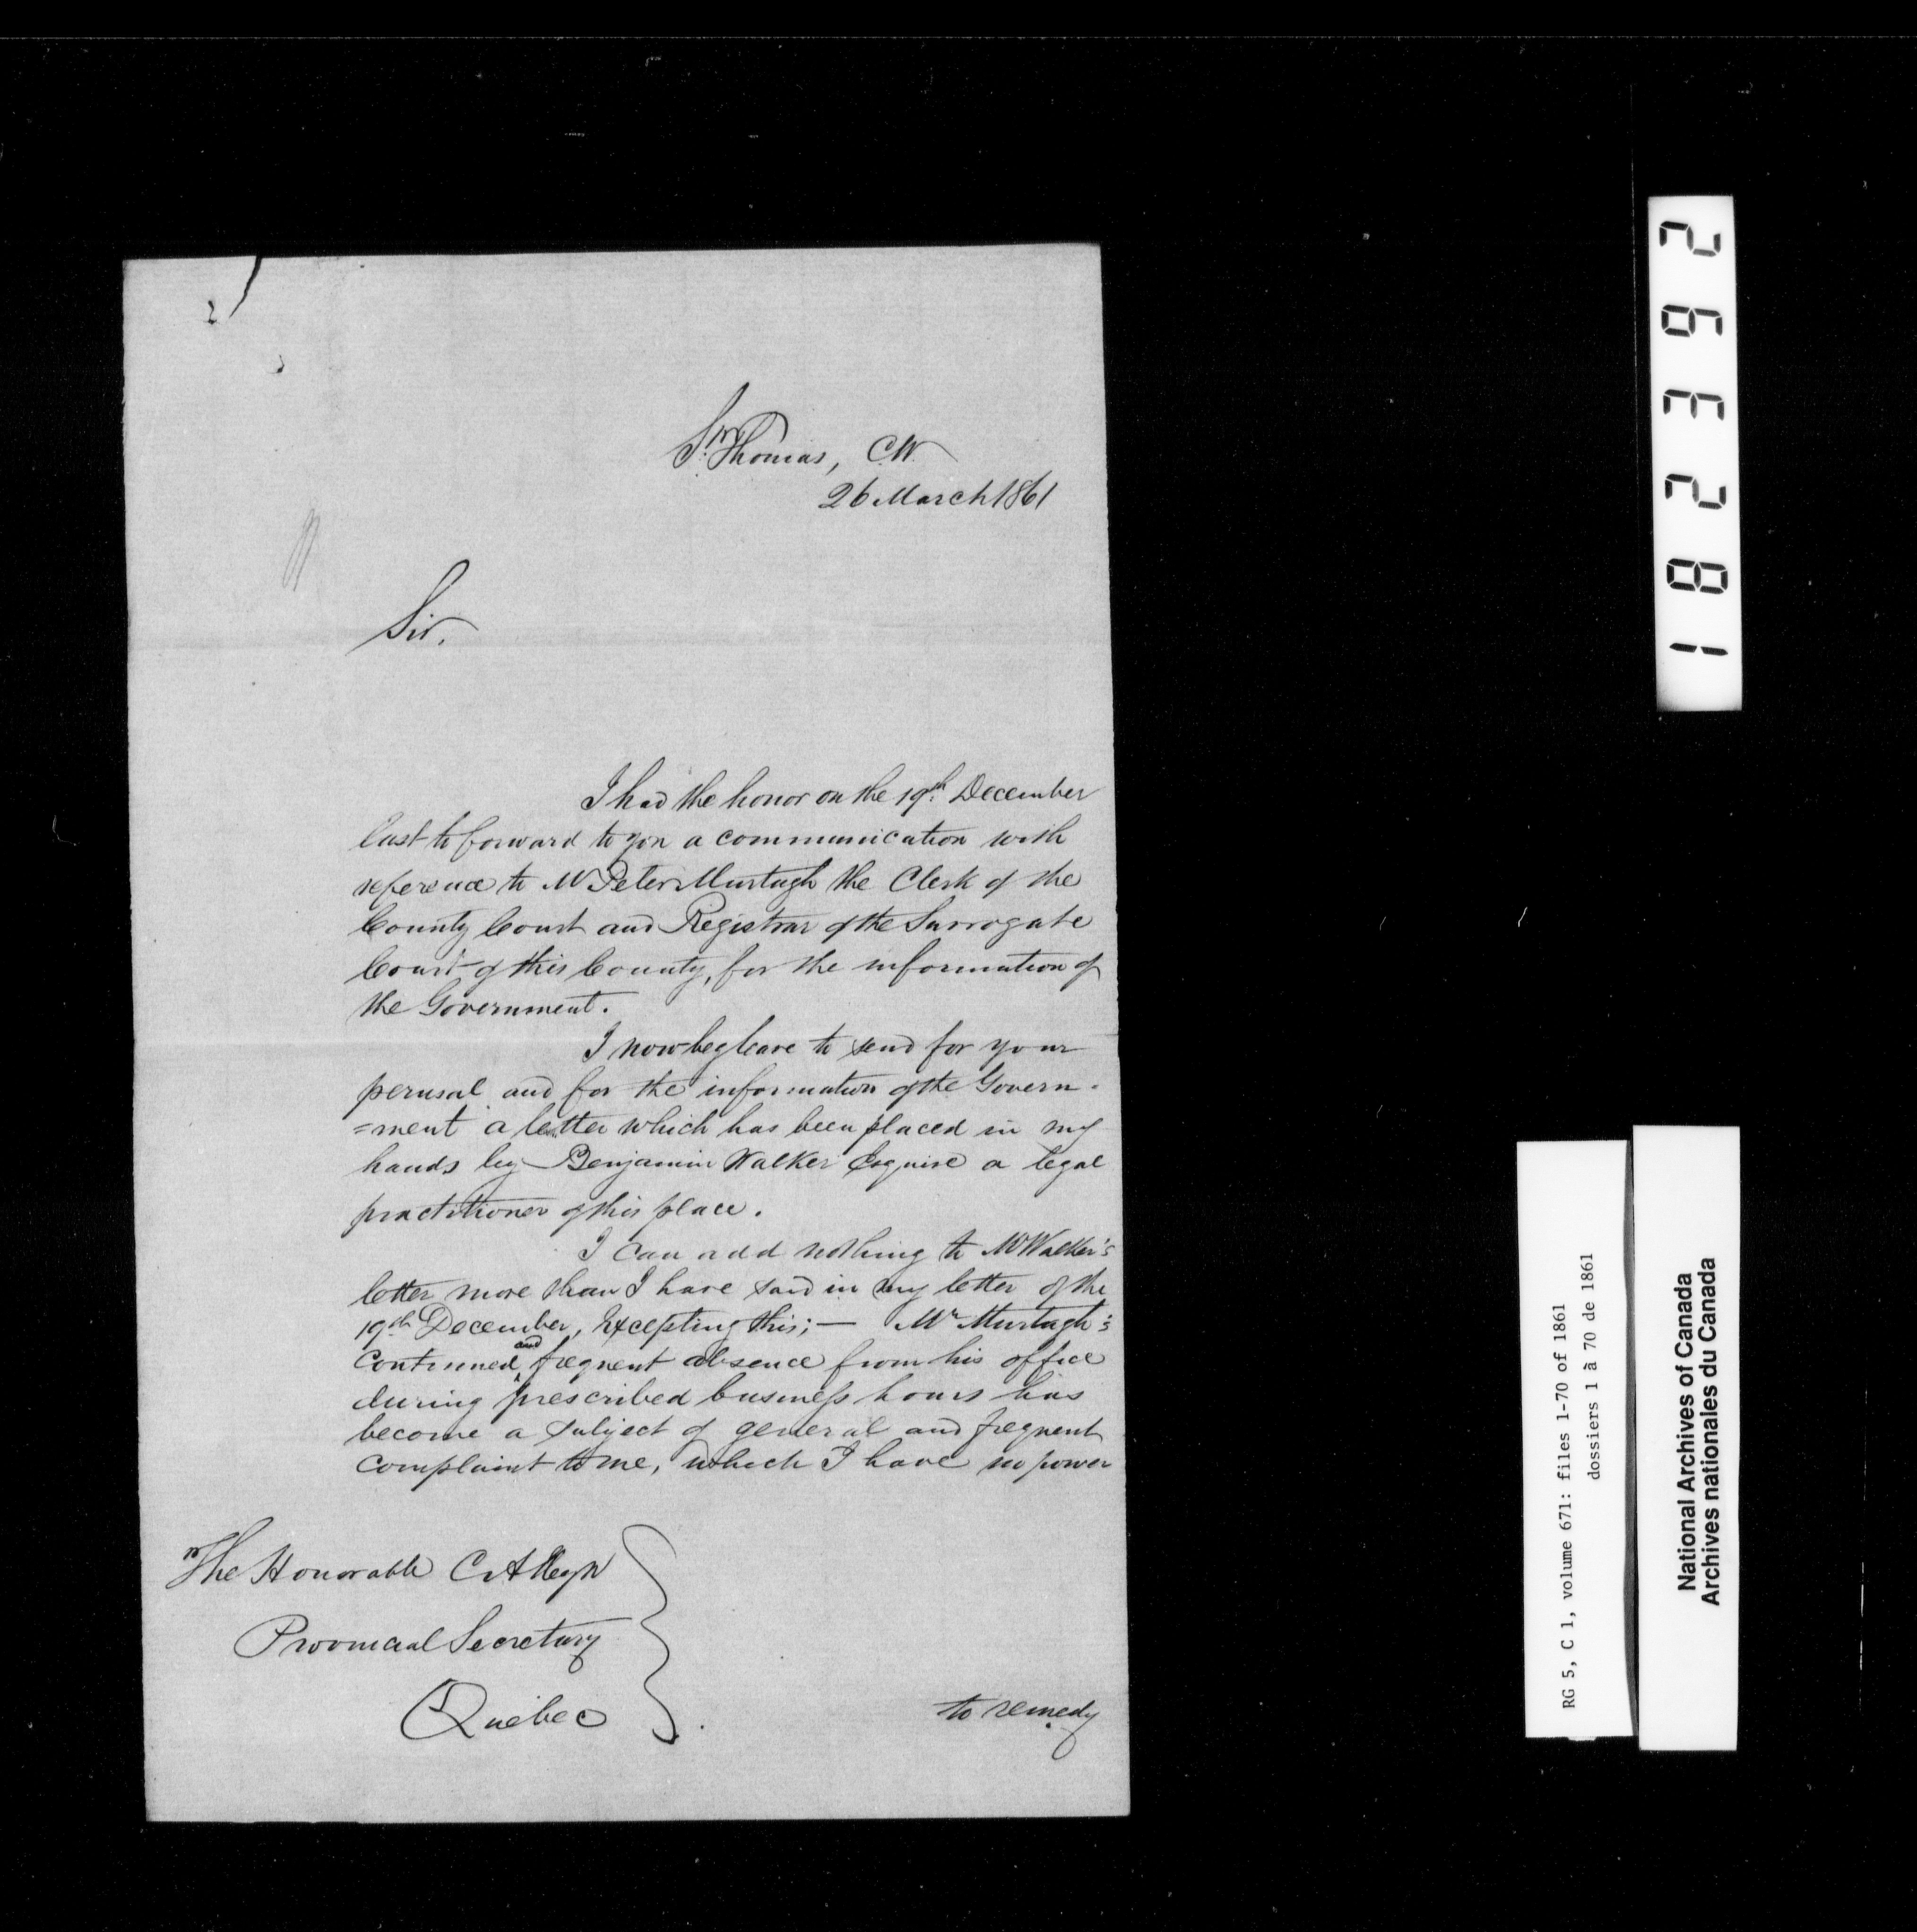 St. Thomas, C.W.
26 March 1861
Sir.
I had the honor on the 19th December
last to forward to you a communication with
reference to Mr Peter Murtagh the Clerk of the
County Court and Registrar of the Surrogate
Court of this County, for the information of
the Government.
I now beg leave to send for your
perusal and for the information of the Govern-
=ment a letter which has been placed in my
hands by Benjamin Walker Esquire a legal
practitioner of this place.
I can add nothing to Mr Walker's
letter more than I have said in my letter of the
19th December, excepting this; — Mr Murtagh's
continued and frequent absence from his office
during prescribed business hours has
become a subject of general and frequent
complaint to me, which I have no power
The Honorable C. Alleyn
Provincial Secretary
Quebec
to remedy
182392
RG 5, C 1, volume 671: files 1-70 of 1861
dossiers 1 à 70 de 1861
National Archives of Canada
Archives nationales du Canada